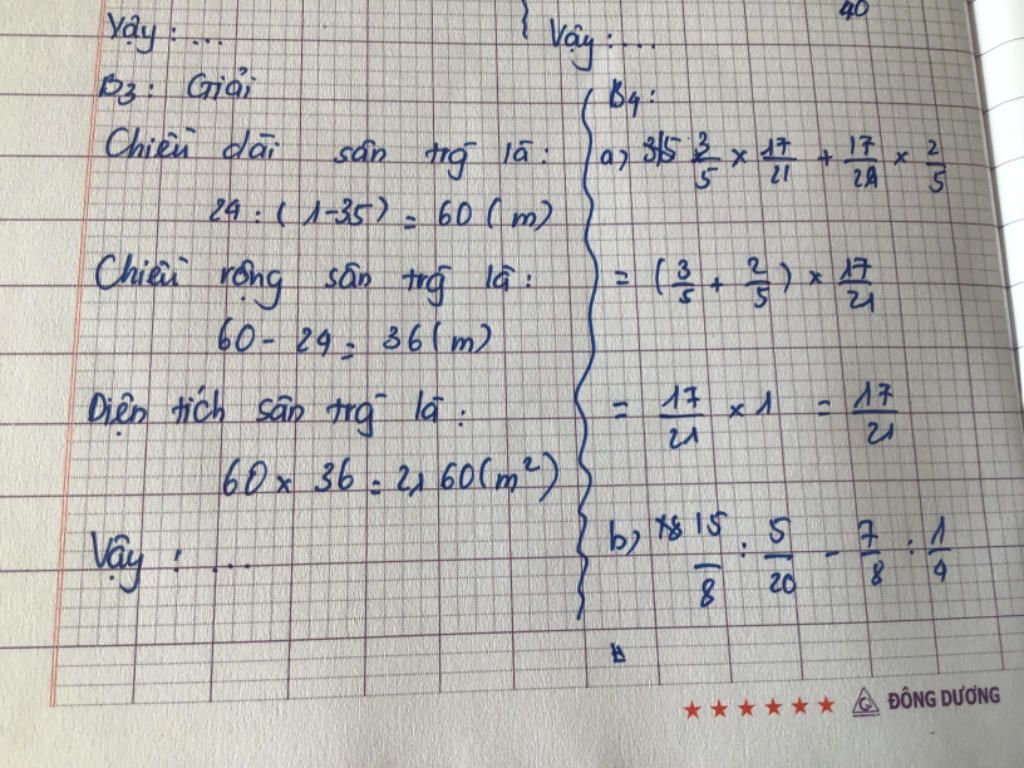 Vậy : ...
B3 : Giải
Chiều dài sân trg là :
24 : ( 1-35) = 60 ( m)
Chiều rộng sân trg là :
60 - 24 = 36 ( m)
Diện tích sân trg là :
60 x 36 = 2160 (m²)
Vậy : ...
40
Vậy : ...
B4 :
a) 3/5 x 17/21 + 17/21 x 2/5
= ( 3/5 + 2/5 ) x 17/21
= 17/21 x 1 = 17/21
b) 15/8 : 5/20 - 7/8 : 1/4
ĐÔNG DƯƠNG